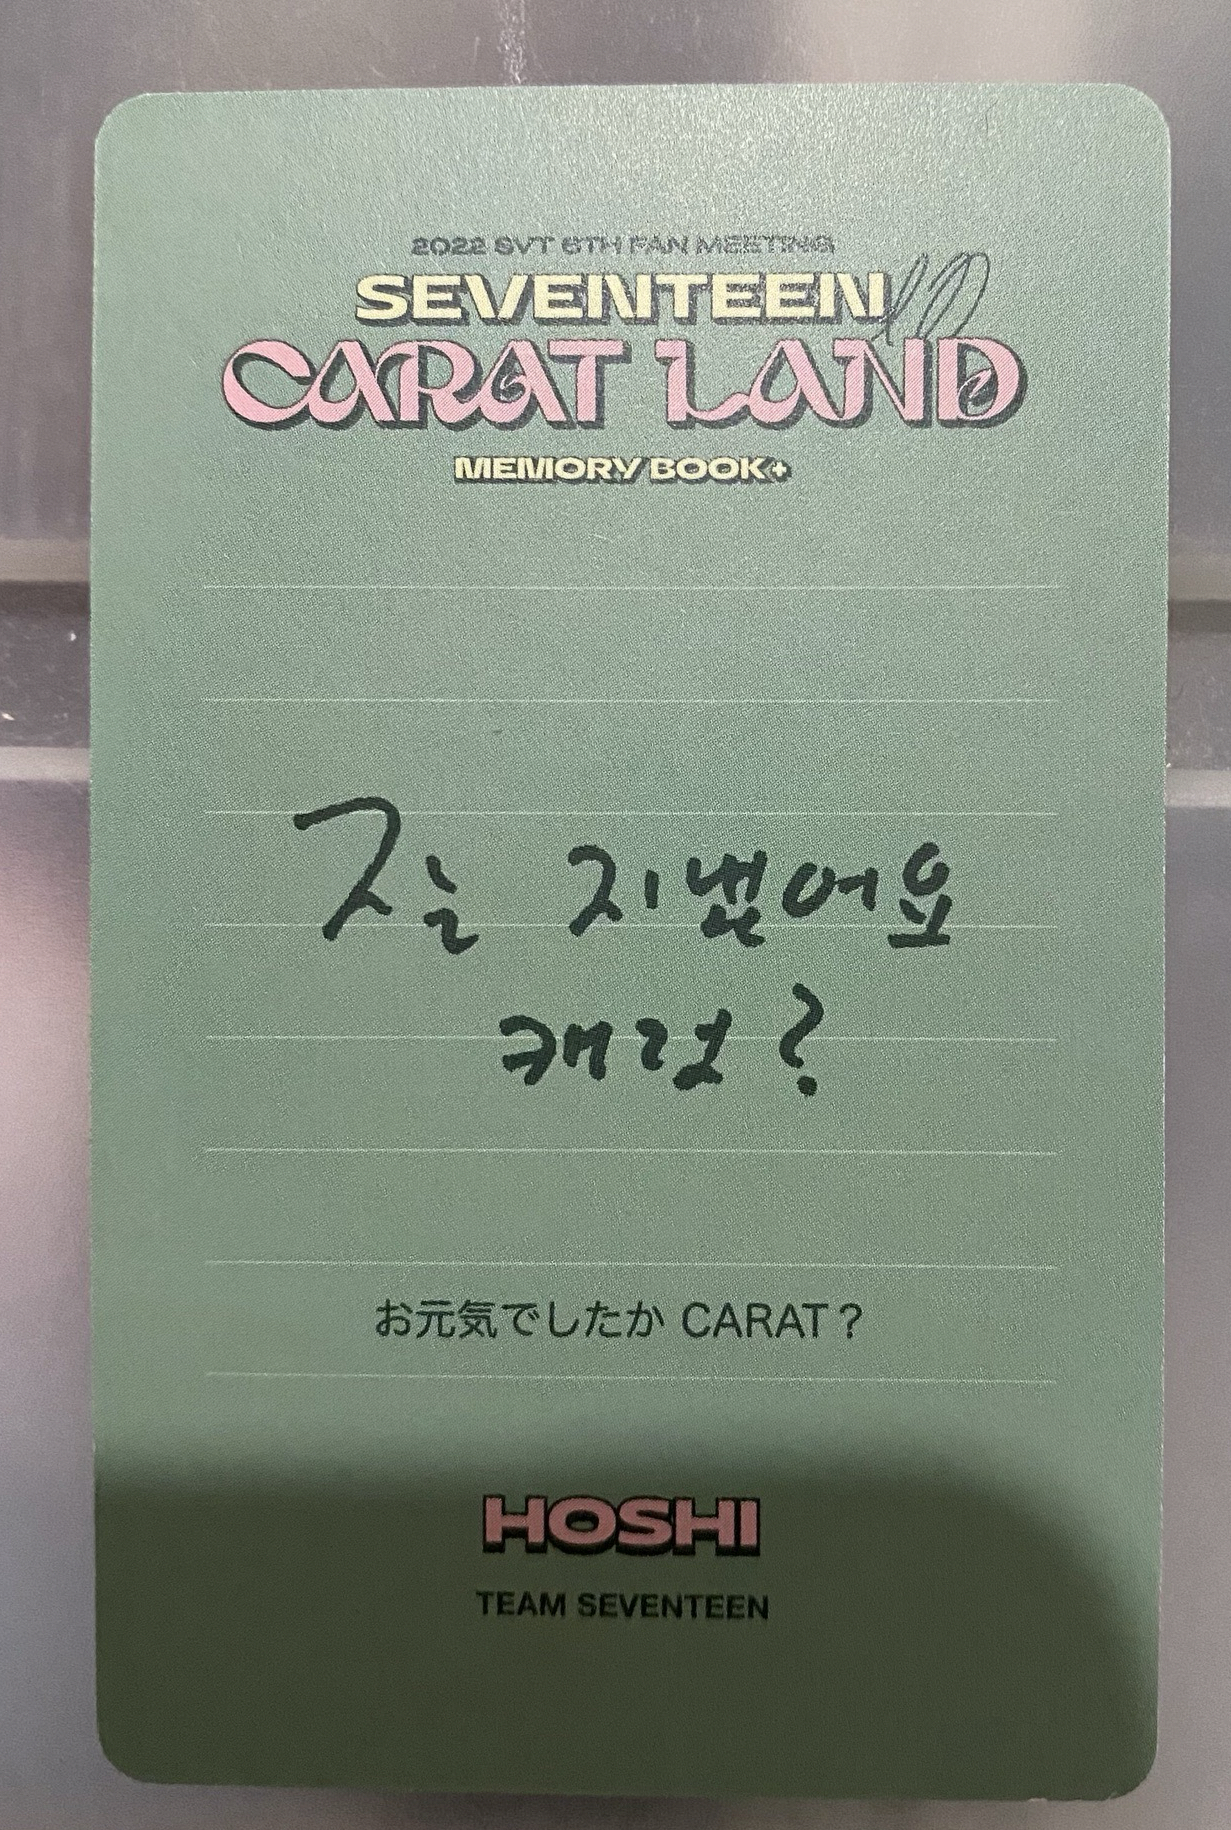 2022 SVT 6TH FAN MEETING
SEVENTEEN
CARAT LAND
MEMORY BOOK+
잘 지냈어요
캐럿?
お元気でしたか CARAT？
HOSHI
TEAM SEVENTEEN